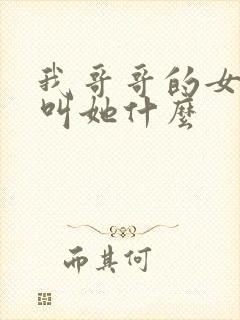 我哥哥的女
叫她什麼
而其何